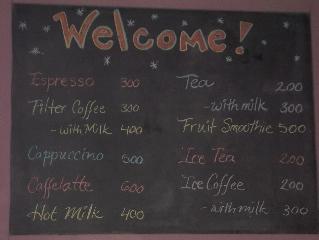 Welcome!
Espresso 300
Filter Coffee 300
- with Milk 400
Cappuccino 500
Caffelatte 600
Hot Milk 400
Tea 200
- with milk 300
Fruit Smoothie 500
Ice Tea 200
Ice Coffee 200
- with milk 300